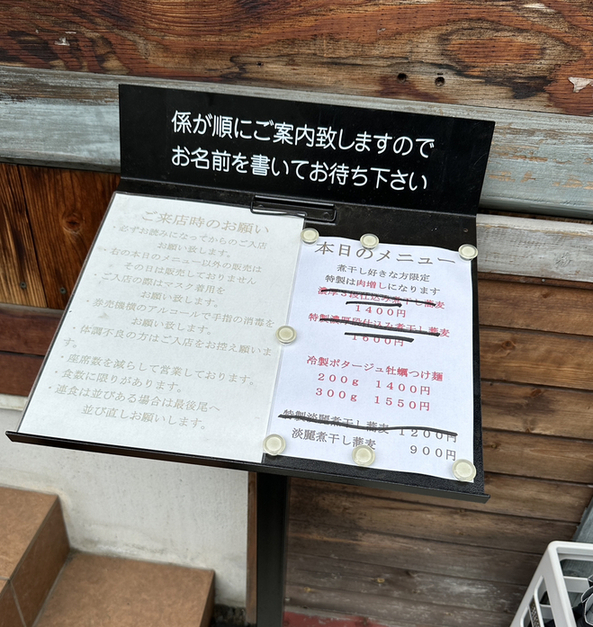 係が順にご案内致しますので
お名前を書いてお待ち下さい
ご来店時のお願い
・必ずお読みになってからのご入店
お願い致します。
・右の本日のメニュー以外の販売は
その日は販売しておりません
・ご入店の際はマスク着用を
お願い致します。
・券売機横のアルコールで手指の消毒を
お願い致します。
・体調不良の方はご入店をお控え願いま
す。
・座席数を減らして営業しております。
・食数に限りがあります。
・連食は並びある場合は最後尾へ
並び直しお願いします。
本日のメニュー
煮干し好きな方限定
特製は肉増しになります
濃厚3段仕込み煮干し蕎麦
1400円
特製濃厚段仕込み煮干し蕎麦
1600円
冷製ポタージュ牡蠣つけ麺
200g 1400円
300g 1550円
特製淡麗煮干し蕎麦 1200円
淡麗煮干し蕎麦
900円